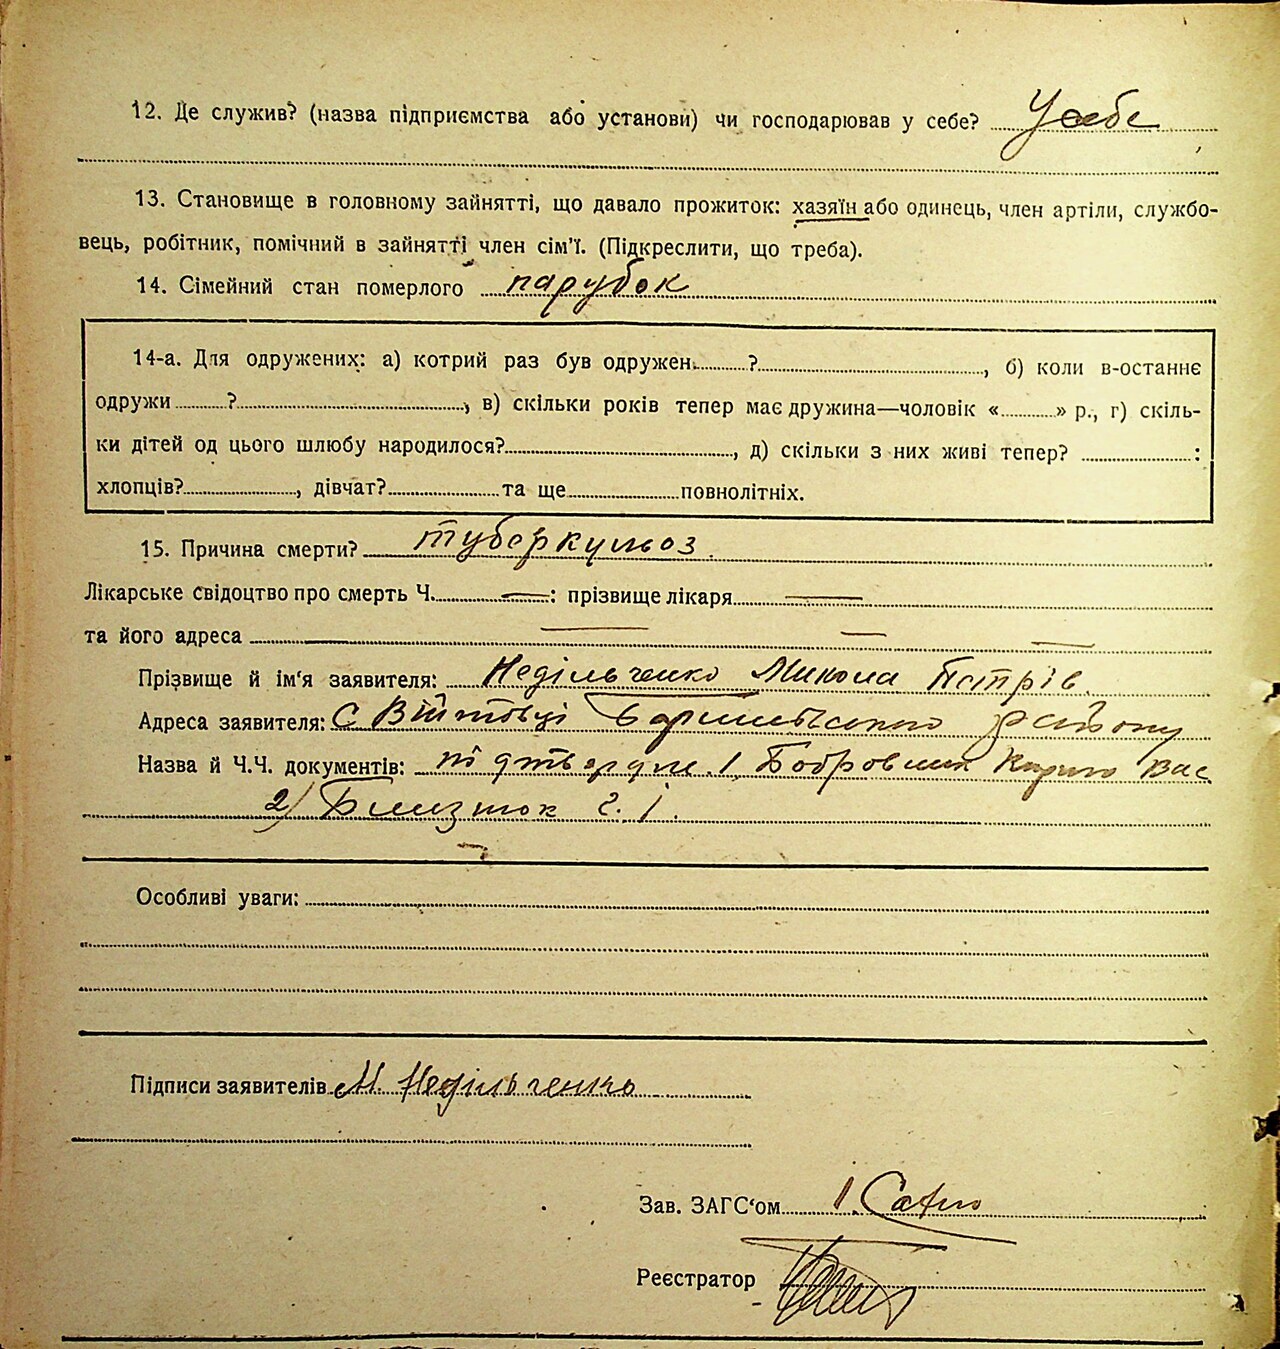 12. Де служив? (назва підприємства або установи) чи господарював у себе? У себе
13. Становище в головному зайнятті, що давало прожиток: хазяїн або одинець, член артіли, службо-
вець, робітник, помічний в зайнятті член сім'ї. (Підкреслити, що треба).
14. Сімейний стан померлого парубок
14-а. Для одружених: а) котрий раз був одружен ?, б) коли в-останнє
одружи ?, в) скільки років тепер має дружина—чоловік « » р., г) скіль-
ки дітей од цього шлюбу народилося?, д) скільки з них живі тепер? :
хлопців?, дівчат? та ще повнолітніх.
15. Причина смерти? туберкульоз.
Лікарське свідоцтво про смерть Ч. — : прізвище лікаря —
та його адреса — — —
Прізвище й ім'я заявителя: Недільченко Микола Петрів.
Адреса заявителя: С Війтовці району
Назва й Ч.Ч. документів: 1 Бобровник Кирило Вас
2) Близнюк Г. І.
Особливі уваги:
Підписи заявителів М. Недільченко
Зав. ЗАГС'ом І.
Реєстратор